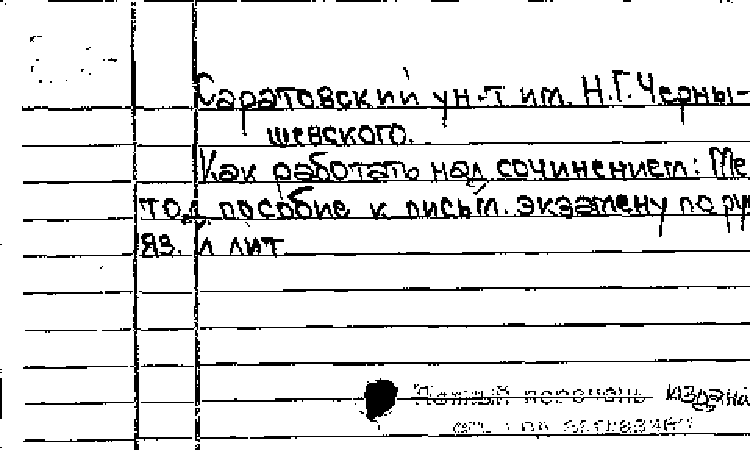 Саратовский ун-т им. Н.Г. Черны-
шевского.
Как работать над сочинением: Ме
тод. пособие к письм. экзамену по ру
яз. и лит
Полный перечень издана